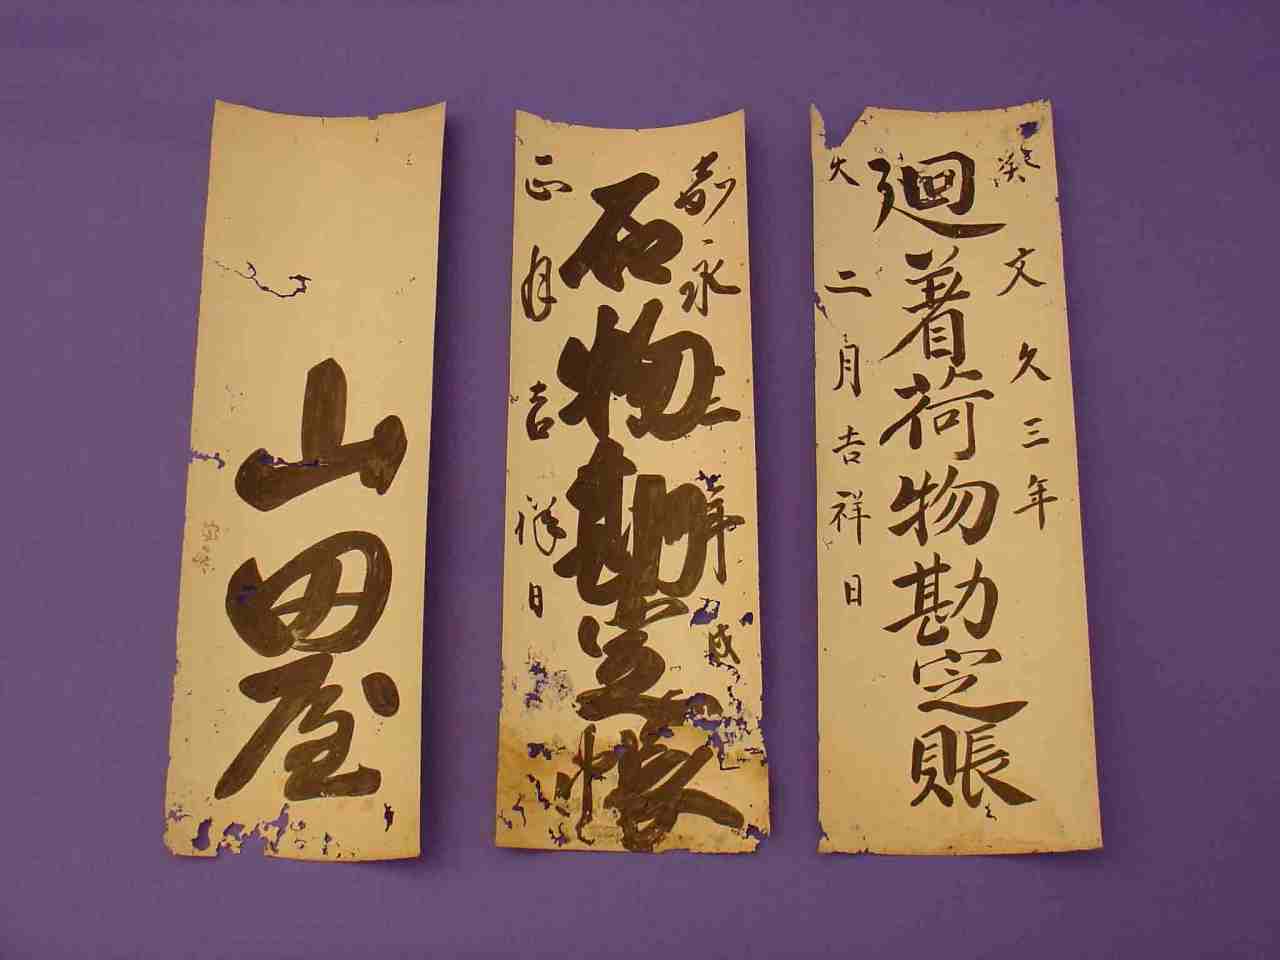 癸
文久三年
廻着荷物勘定賬
二月吉祥日
嘉永三年
戌
石物勘定帳
正月吉祥日
山田屋